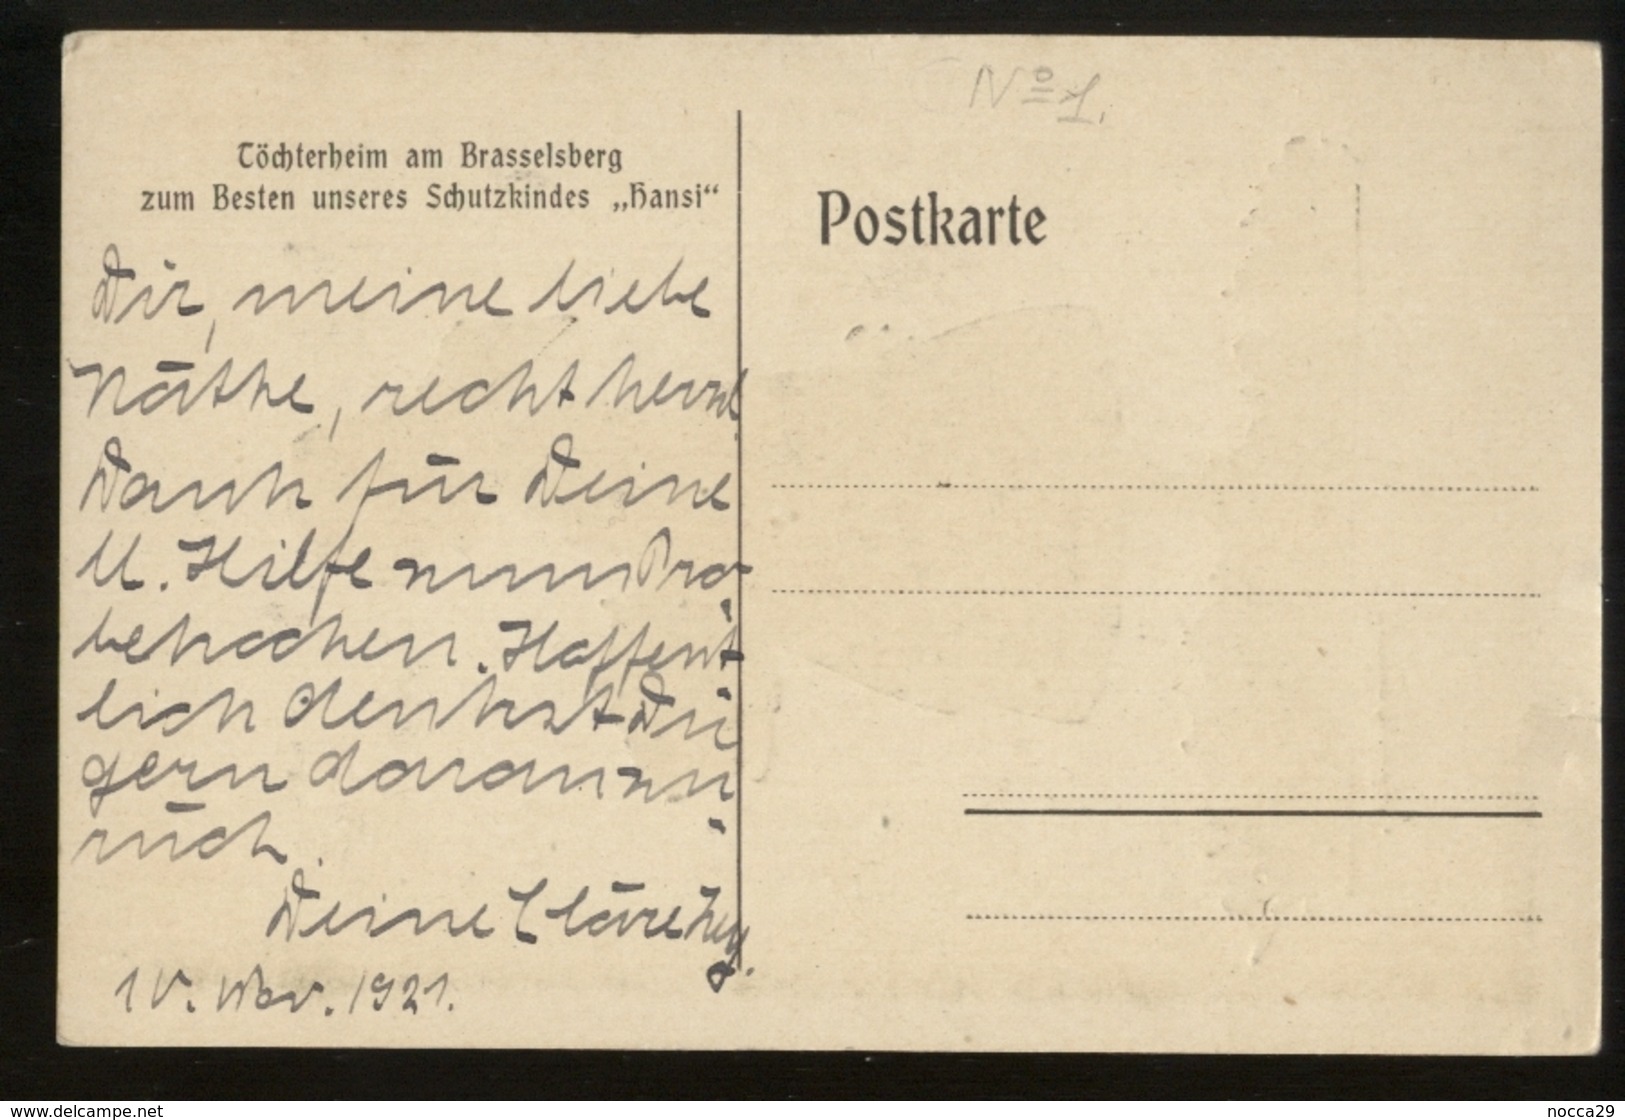 No 1.
Töchterheim am Brasselsberg
zum Besten unseres Schutzkindes „Hansi“
Postkarte
Dir, meine liebe
Käthe, recht herzl.
Dank für Deine
M. Hilfe zum Pro-
bekochen. Hoffent-
lich denkst Du
gern daran zu
rück.
Deine Cläre
Nov. 1921.
www.delcampe.net
nocca29